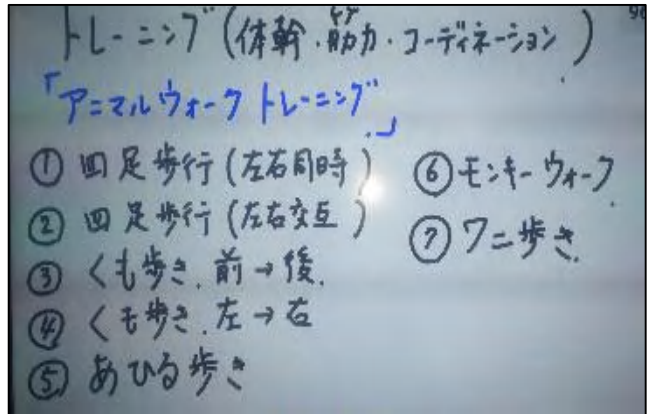 トレーニング(体幹・筋力・コーディネーション)
「アニマルウォークトレーニング」
① 四足歩行(左右同時)
② 四足歩行(左右交互)
③ くも歩き、前→後、
④ くも歩き、左→右
⑤ あひる歩き
⑥ モンキーウォーク
⑦ ワニ歩き